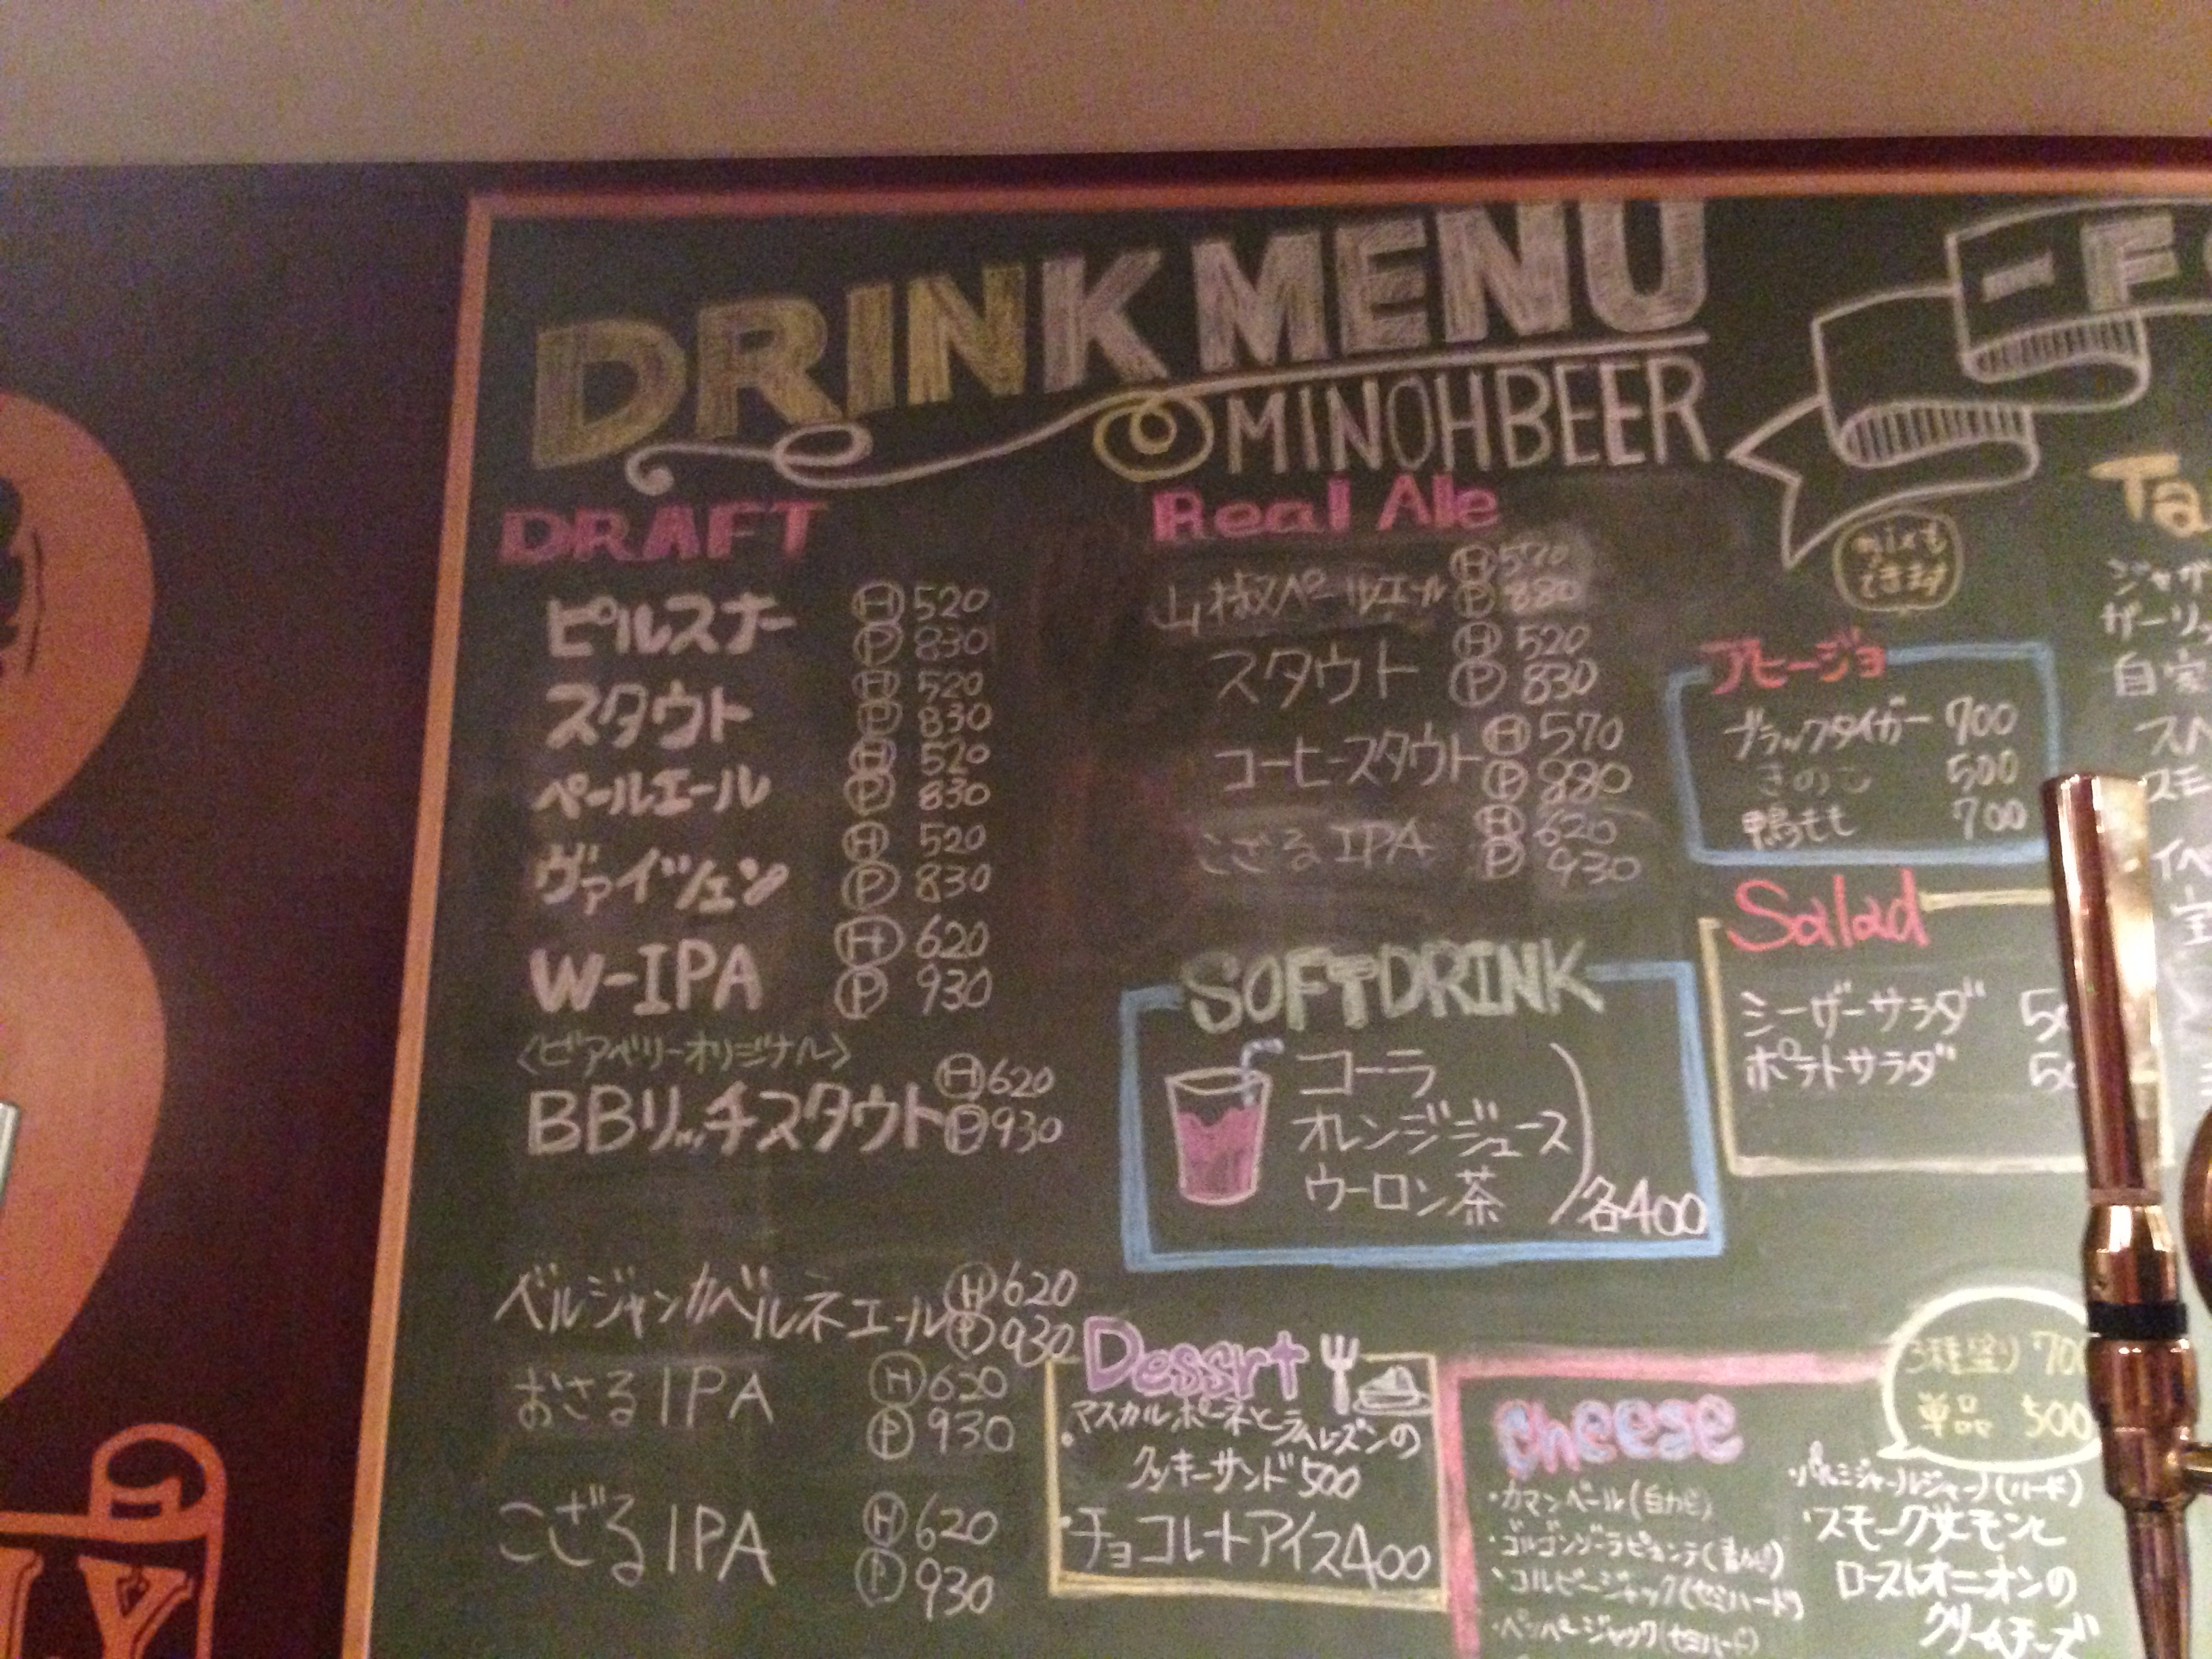 DRINK MENU
MINOHBEER
DRAFT
ピルスナー Ⓗ520
Ⓟ830
スタウト Ⓗ520
Ⓟ830
ペールエール Ⓗ520
Ⓟ830
ヴァイツェン Ⓗ520
Ⓟ830
W-IPA Ⓗ620
Ⓟ930
〈ビアベリーオリジナル〉
BBリッチスタウト Ⓗ620
Ⓟ930
ベルジャンカベルネエール Ⓗ620
Ⓟ930
おさるIPA Ⓗ620
Ⓟ930
こざるIPA Ⓗ620
Ⓟ930
Real Ale
山椒ペールエール Ⓗ570
Ⓟ880
スタウト Ⓗ520
Ⓟ830
コーヒースタウト Ⓗ570
Ⓟ880
こざるIPA Ⓗ620
Ⓟ930
SOFTDRINK
コーラ
オレンジジュース
ウーロン茶
各400
Dessrt
・マスカルポーネとラムレーズンの
クッキーサンド500
・チョコレートアイス400
mixも
できます
アヒージョ
ブラックタイガー 700
きのこ 500
鴨もも 700
Salad
シーザーサラダ
ポテトサラダ
Cheese
3種(盛)
単品 500
・カマンベール(白カビ)
・ゴルゴンゾーラピカンテ(青カビ)
・コルビージャック(セミハード)
・ペッパージャック(セミハード)
・パルミジャーノレジャーノ(ハード)
・スモークサーモンと
ローストオニオンの
クリームチーズ
Ta